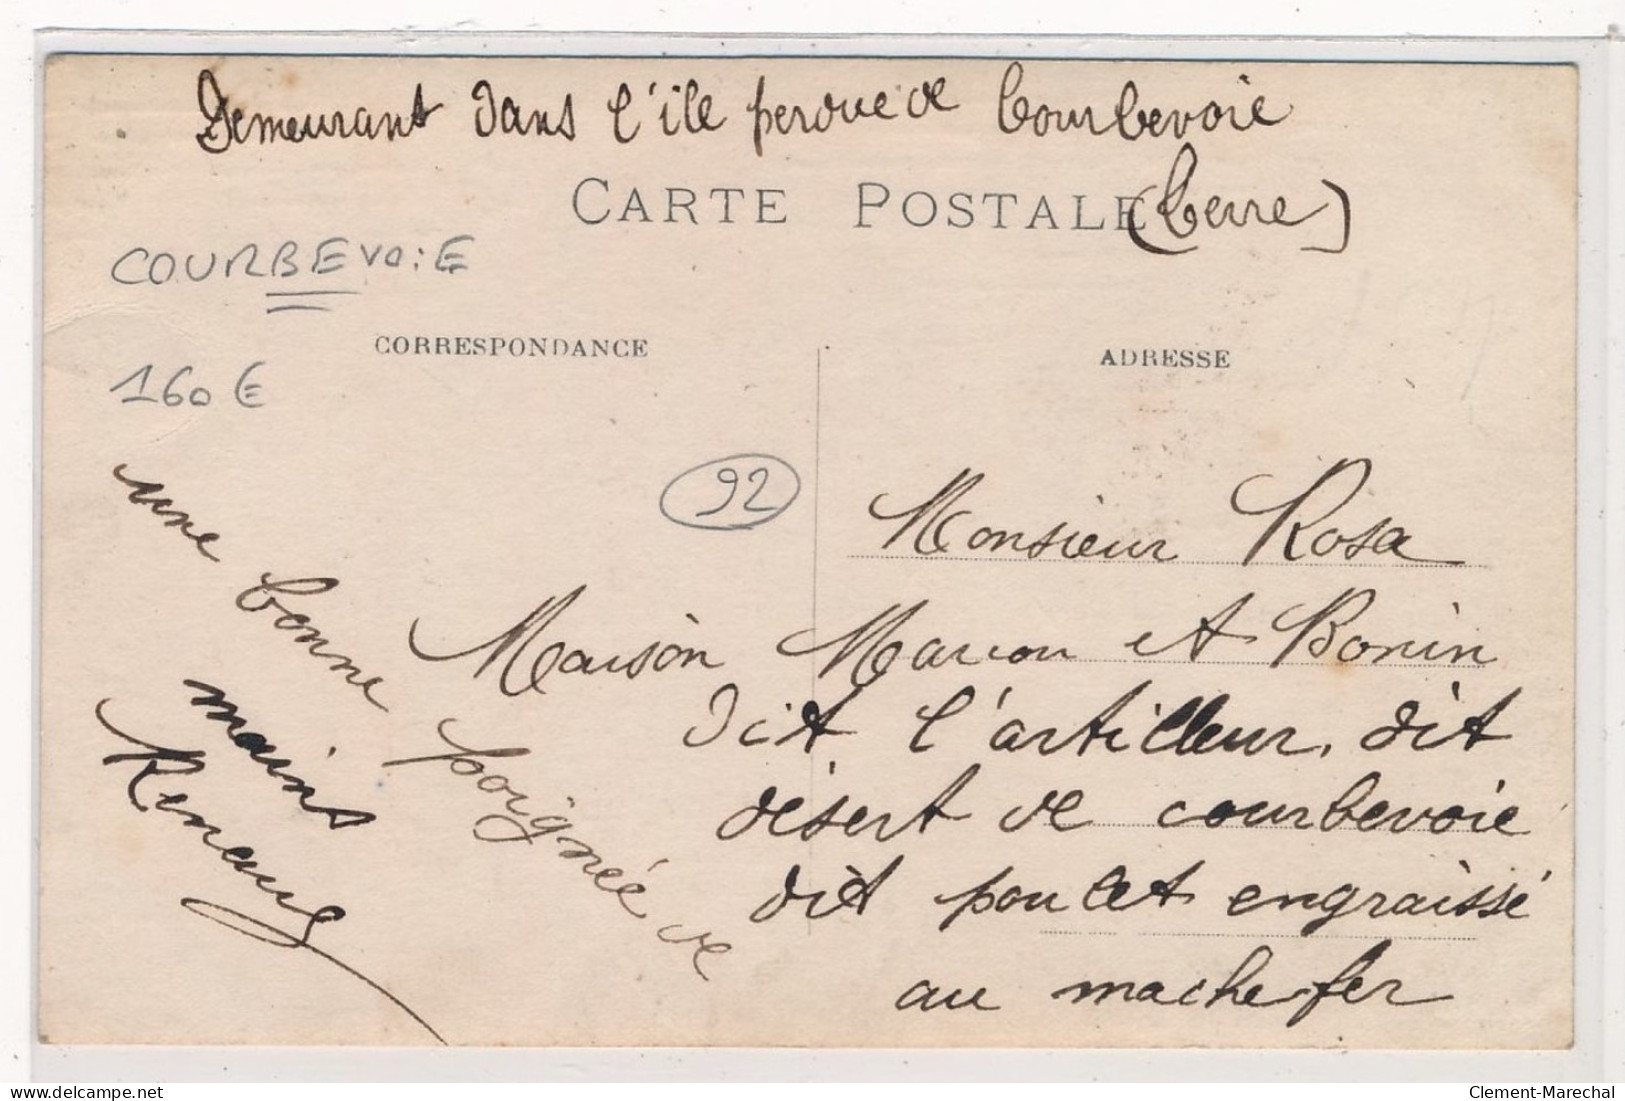 Demeurant dans l'ile perdue de Courbevoie
CARTE POSTALE
COURBEVOIE
CORRESPONDANCE
ADRESSE
160 €
92
une bonne poignée de
mains
Monsieur Rosa
Maison Marcou et Bonin
dit l'artilleur, dit
désert de courbevoie
dit poulet engraissé
au mache-fer
www.delcampe.net
Clement-Marechal